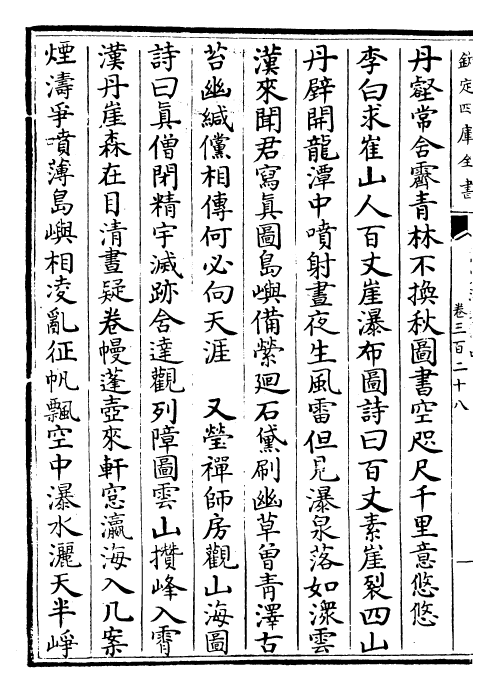 欽定四庫全書
卷三百二十八
一
丹壑常含霽青林不換秋圖書空咫尺千里意悠悠
李白求崔山人百丈崖瀑布圖詩曰百丈素崖裂四山
丹壁開龍潭中噴射晝夜生風雷但見瀑泉落如潨雲
漢來聞君寫真圖島嶼備縈迴石黛刷幽草曾青澤古
苔幽緘儻相傳何必向天涯　又瑩禪師房觀山海圖
詩曰真僧閉精宇滅跡含達觀列障圖雲山攢峰入霄
漢丹崖森在目清晝疑卷幔蓬壺來軒窓瀛海入几案
煙濤爭噴薄島嶼相凌亂征帆飄空中瀑水灑天半崢